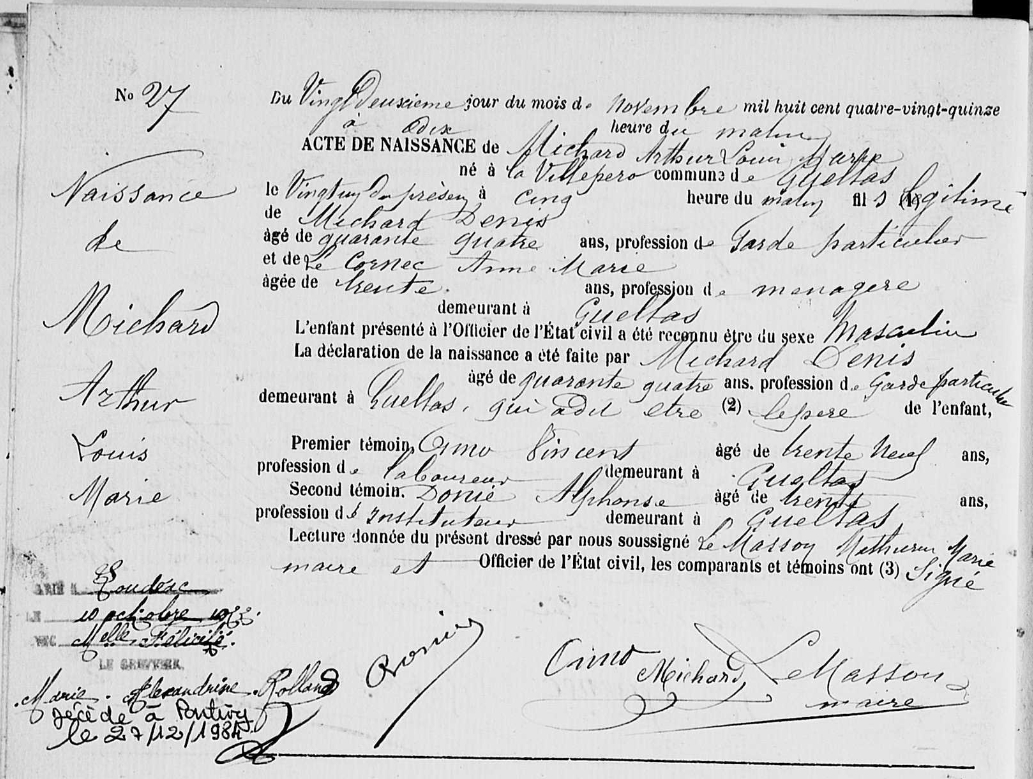 No 27
Naissance
de
Michard
Arthur
Louis
Marie
Du Vingt deuxieme jour du mois de novembre mil huit cent quatre-vingt-quinze
à dix heure du matin
ACTE DE NAISSANCE de Michard Arthur Louis Marie
né à la Villepero commune de Gueltas
le Vingt un du présent à cinq heure du matin fils (1) legitime
de Michard Denis
âgé de quarante quatre ans, profession de Garde particulier
et de Le Cornec Anne Marie
âgée de trente ans, profession de menagere
demeurant à Gueltas
L'enfant présenté à l'Officier de l'État civil a été reconnu être du sexe Masculin
La déclaration de la naissance a été faite par Michard Denis
âgé de quarante quatre ans, profession de Garde particulier
demeurant à Gueltas, qui a dit etre (2) le pere de l'enfant,
Premier témoin, Cimo Vincent âgé de trente neuf ans,
profession de laboureur demeurant à Gueltas
Second témoin, Donié Alphonse âgé de trente ans,
profession de instituteur demeurant à Gueltas
Lecture donnée du présent dressé par nous soussigné Le Masson Mathurin Marie
maire et Officier de l'État civil, les comparants et témoins ont (3) Signé
Loudeac
LE 10 octobre
AVEC Melle Félicité
LE GREFFIER,
Marie Alexandrine Rolland
décédé à Pontivy
le 27/12/1984
Donié
Cimo
Michard
Le Masson
maire